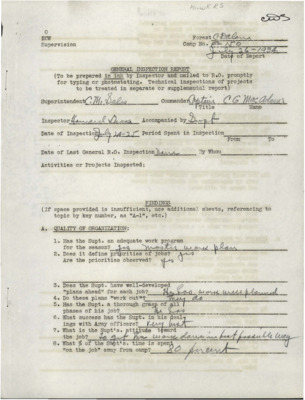 G
ECW
Supervision
Forest
Camp No.
July 26-1934
Date of Report
GENERAL INSPECTION REPORT
(To be prepared in ink by Inspector and mailed to R.O. promptly
for typing or photostating. Technical inspections of projects
to be treated in separate or supplemental report)
Superintendent C.M. Commander Captain C G
Title Name
Inspector Accompanied by Supt
Date of Inspection July 24-25 Period Spent in Inspection
From To
Date of Last General R.O. Inspection None By Whom:
Activities or Projects Inspected:
FINDINGS
(If space provided is insufficient, use additional sheets, referencing to
topic by key number, as "A-1", etc.)
A. QUALITY OF ORGANIZATION:
1. Has the Supt. an adequate work program
for the season? yes master work plan
2. Does it define priorities of jobs? yes
Are the priorities observed? yes
3. Does the Supt. have well-developed
"plans ahead" for each job? He has work well planned
4. Do these plans "work out"? They do
5. Has the Supt. a thorough grasp of all
phases of his job? He has
6. What success has the Supt. in his deal-
ings with Army officers? Very best
7. What is the Supt's. attitude toward
the job? To get his work done in best possible way
8. What % of the Supt's. time is spent
"on the job" away from camp? 80 percent